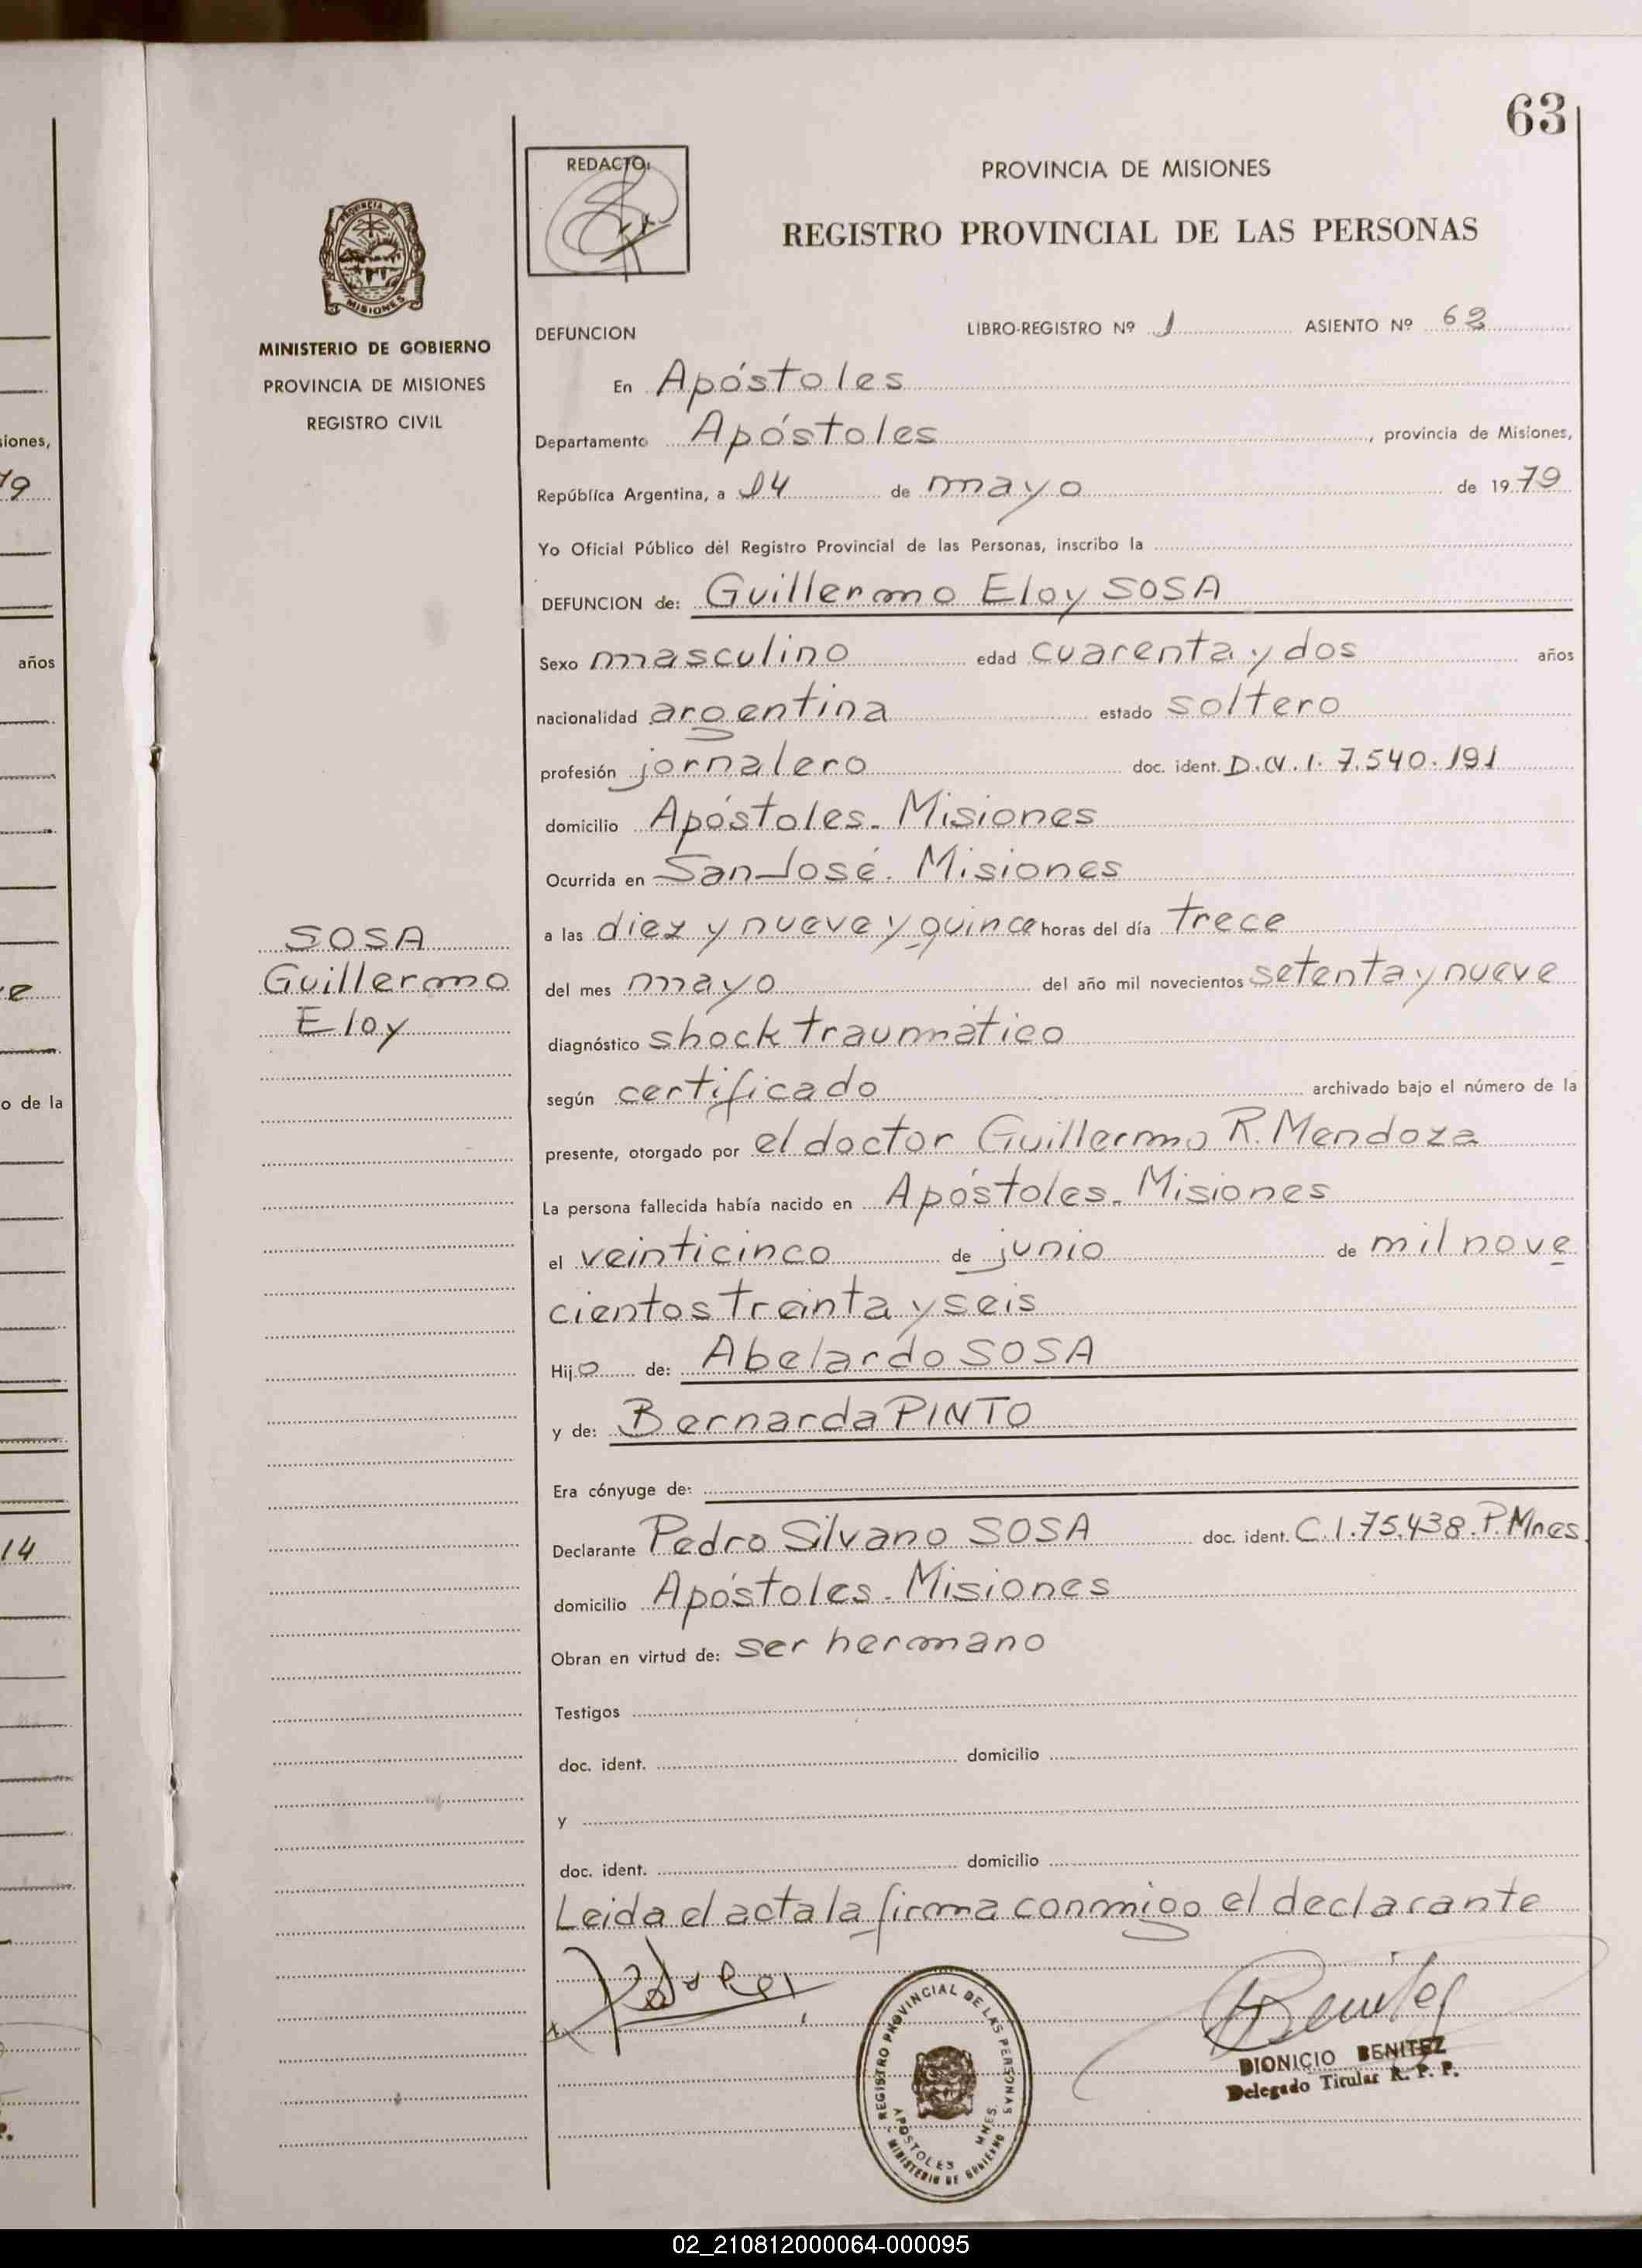 63
REDACTO:
PROVINCIA DE MISIONES
REGISTRO PROVINCIAL DE LAS PERSONAS
MISIONES
MINISTERIO DE GOBIERNO
PROVINCIA DE MISIONES
REGISTRO CIVIL
DEFUNCION LIBRO-REGISTRO Nº 1 ASIENTO Nº 62
En Apóstoles
Departamento Apóstoles, provincia de Misiones,
República Argentina, a 14 de mayo de 1979
Yo Oficial Público del Registro Provincial de las Personas, inscribo la
DEFUNCION de: Guillermo Eloy SOSA
Sexo masculino edad cuarenta y dos años
nacionalidad argentina estado soltero
profesión jornalero doc. ident. D.N.I. 7.540.191
domicilio Apóstoles. Misiones
Ocurrida en San José. Misiones
SOSA
Guillermo
Eloy
a las diez y nueve y quince horas del día trece
del mes mayo del año mil novecientos setenta y nueve
diagnóstico shock traumático
según certificado archivado bajo el número de la
presente, otorgado por el doctor Guillermo R. Mendoza
La persona fallecida había nacido en Apóstoles. Misiones
el veinticinco de junio de mil nove
cientos treinta y seis
Hijo de: Abelardo SOSA
y de: Bernarda PINTO
Era cónyuge de:
Declarante Pedro Silvano SOSA doc. ident. C.I. 75.438. P. Mnes
domicilio Apóstoles. Misiones
Obran en virtud de: ser hermano
Testigos
doc. ident. domicilio
y
doc. ident. domicilio
Leida el acta la firma conmigo el declarante
Benitez
REGISTRO PROVINCIAL DE LAS PERSONAS
APOSTOLES MNES.
MINISTERIO DE GOBIERNO
DIONICIO BENITEZ
Delegado Titular R. P. P.
siones,
79
años
o de la
14
02_210812000064-000095